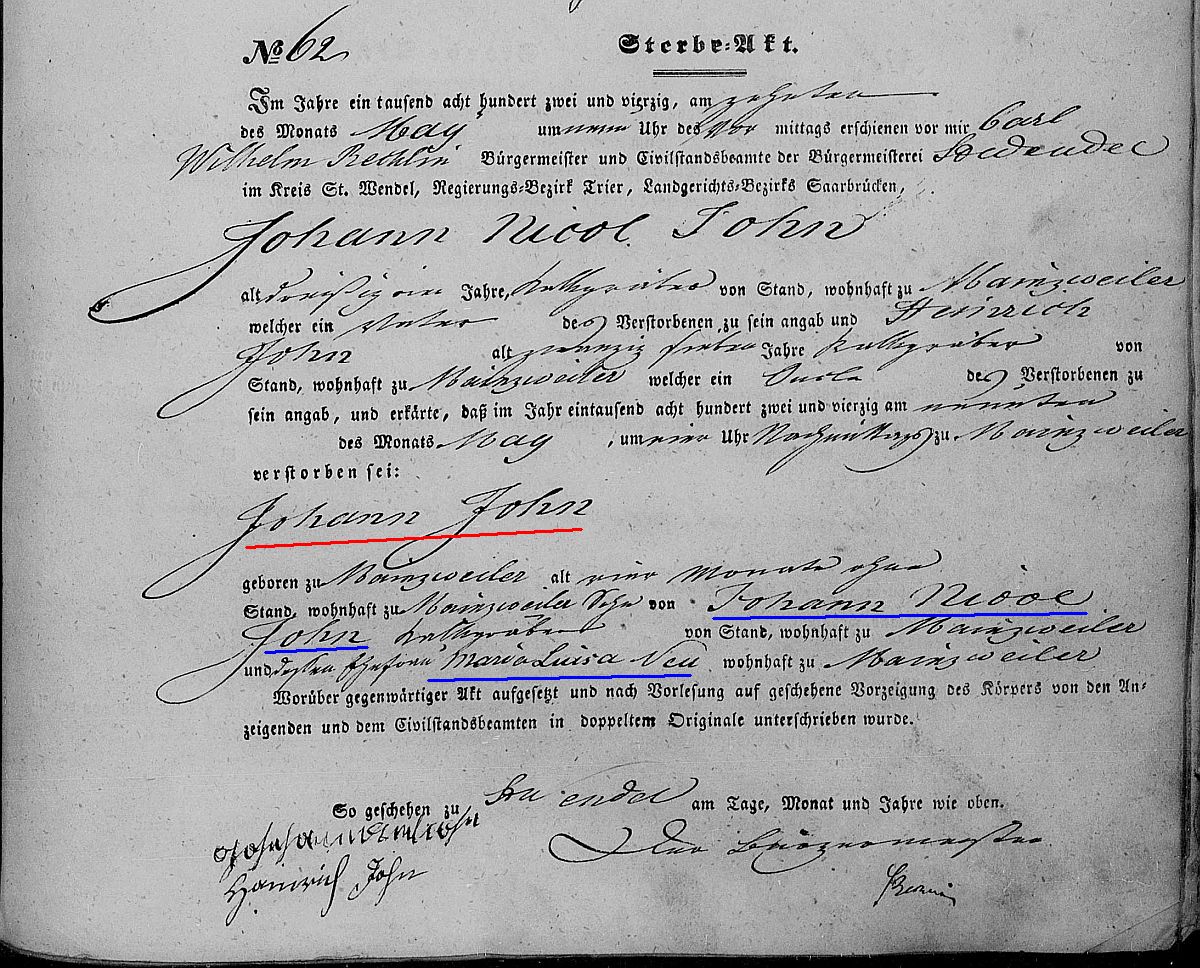 No 62
Sterbe-Akt.
Im Jahre ein tausend acht hundert zwei und vierzig, am zehnten
des Monats May um neun Uhr des Vor mittags erschienen vor mir Carl
Wilhelm Rethlin Bürgermeister und Civilstandsbeamte der Bürgermeisterei
im Kreis St. Wendel, Regierungs-Bezirk Trier, Landgerichts-Bezirks Saarbrücken,
Johann Nicol. John
alt dreißig ein Jahre, Kalkgräber von Stand, wohnhaft zu Mainzweiler
welcher ein Vater des Verstorbenen zu sein angab und Heinrich
John alt zwanzig sieben Jahre Kalkgräber von
Stand, wohnhaft zu Mainzweiler welcher ein Oncle des Verstorbenen zu
sein angab, und erkärte, daß im Jahr eintausend acht hundert zwei und vierzig am neunten
des Monats May, um vier Uhr Nachmittags zu Mainzweiler
verstorben sei:
Johann John
geboren zu Mainzweiler alt vier Monate ohne
Stand, wohnhaft zu Mainzweiler Sohn von Johann Nicol
John Kalkgräber von Stand, wohnhaft zu Mainzweiler
und dessen Ehefrau Maria Luisa Neu wohnhaft zu Mainzweiler
Worüber gegenwärtiger Akt aufgesetzt und nach Vorlesung auf geschehene Vorzeigung des Körpers von den An-
zeigenden und dem Civilstandsbeamten in doppeltem Originale unterschrieben wurde.
So geschehen zu am Tage, Monat und Jahre wie oben.
Der Bürgermeister
Heinrich John